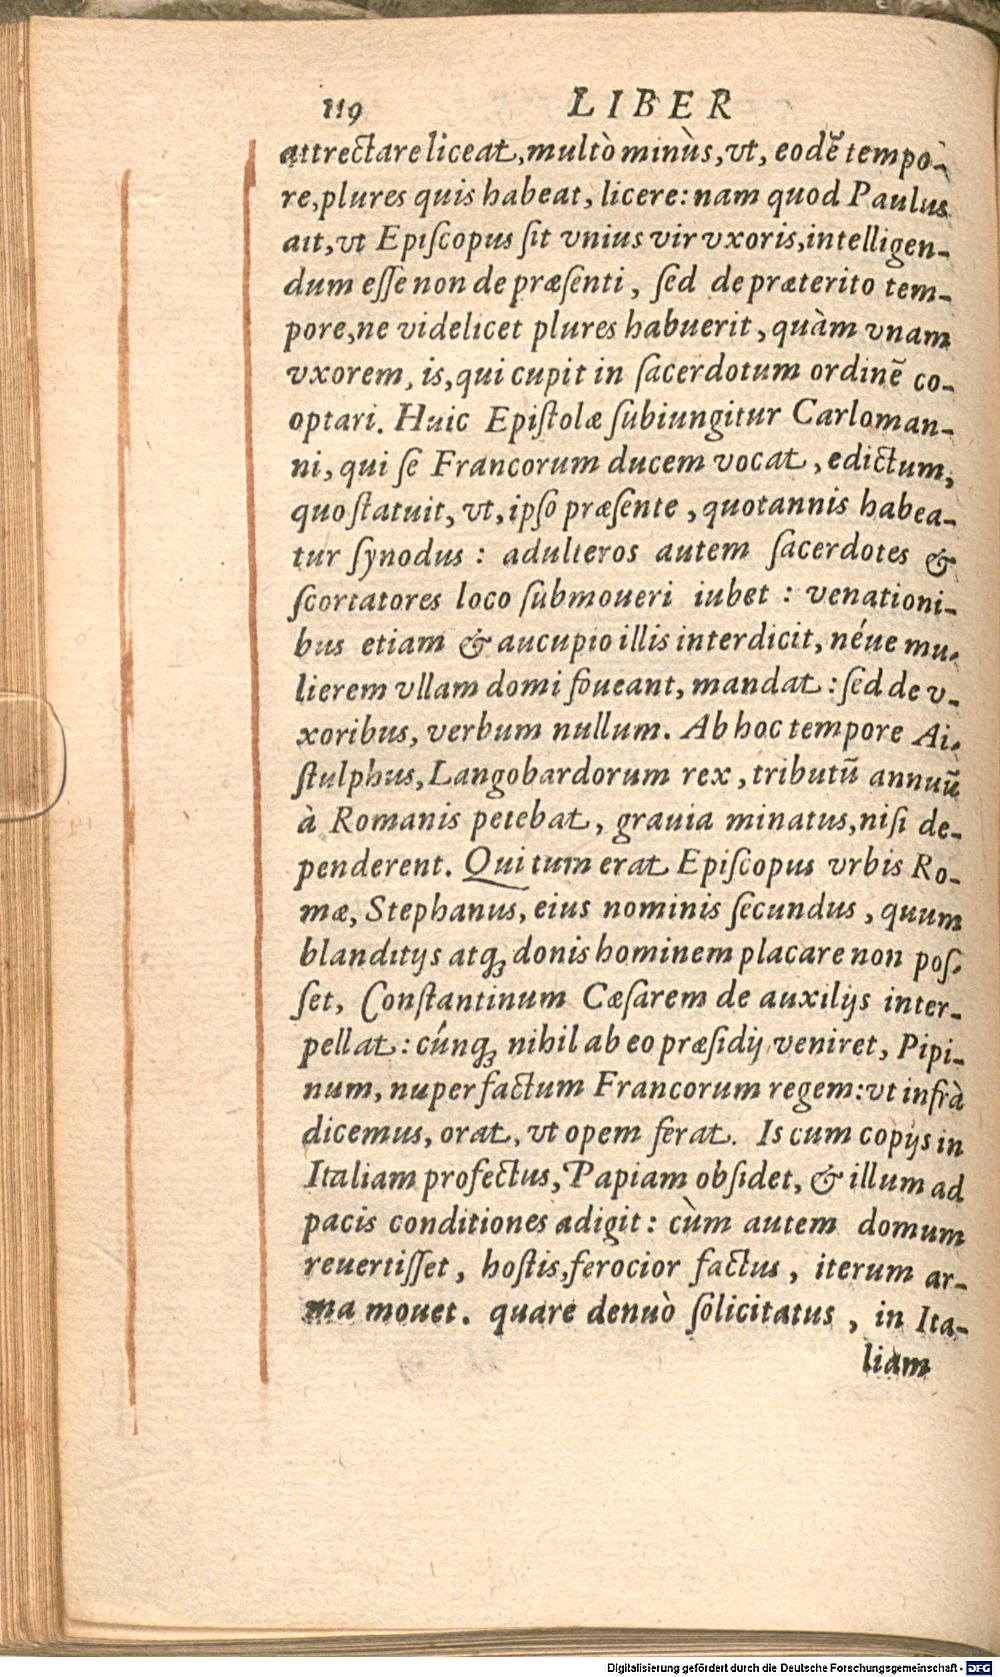 119 LIBER
attrectare liceat, multò minùs, vt, eodẽ tempo-
re, plures quis habeat, licere: nam quod Paulus
ait, vt Episcopus sit vnius vir vxoris, intelligen-
dum esse non de præsenti, sed de præterito tem-
pore, ne videlicet plures habuerit, quàm vnam
vxorem, is, qui cupit in sacerdotum ordinẽ co-
optari. Huic Epistolæ subiungitur Carloman-
ni, qui se Francorum ducem vocat, edictum,
quo statuit, vt, ipso præsente, quotannis habea-
tur synodus: adulteros autem sacerdotes &
scortatores loco submoueri iubet: venationi-
bus etiam & aucupio illis interdicit, néue mu-
lierem vllam domi foueant, mandat: sed de v-
xoribus, verbum nullum. Ab hoc tempore Ai-
stulphus, Langobardorum rex, tributũ annuũ
à Romanis petebat, grauia minatus, nisi de-
penderent. Qui tum erat Episcopus vrbis Ro-
mæ, Stephanus, eius nominis secundus, quum
blanditijs atq; donis hominem placare non pos-
set, Constantinum Cæsarem de auxilijs inter-
pellat: cúnq; nihil ab eo præsidij veniret, Pipi-
num, nuper factum Francorum regem: vt infrà
dicemus, orat, vt opem ferat. Is cum copijs in
Italiam profectus, Papiam obsidet, & illum ad
pacis conditiones adigit: cùm autem domum
reuertisset, hostis, ferocior factus, iterum ar-
ma mouet. quare denuò solicitatus, in Ita-
liam
Digitalisierung gefördert durch die Deutsche Forschungsgemeinschaft - DFG